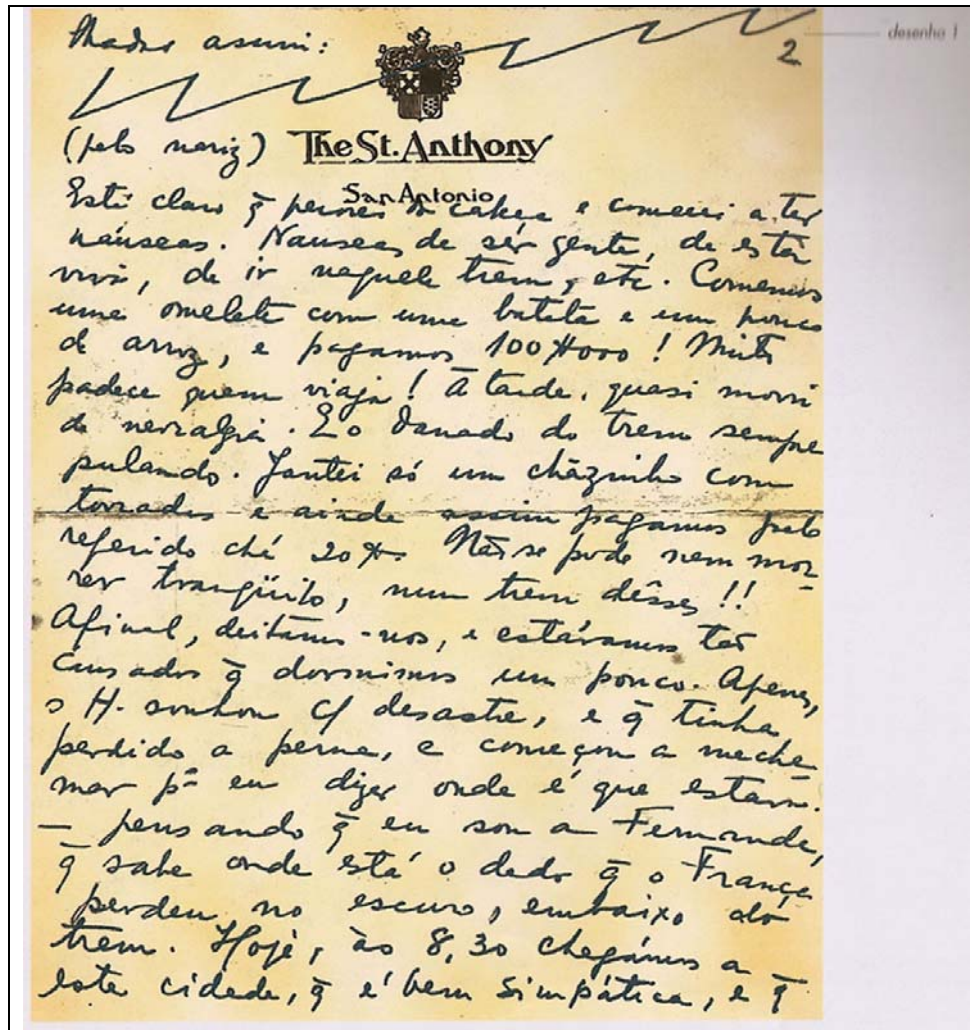 assim:
2
desenho 1
(pelo nariz) The St. Anthony
San Antonio
Está claro q̄ piorei da cabeça e comecei a ter
náuseas. Nauseas de ser gente, de estar
viva, de ir naquele trem, etc. Comemos
uma omelete com uma batata e um pouco
de arroz, e pagamos 100$000! Muito
padece quem viaja! À tarde, quasi morri
de nevralgia. E o danado do trem sempre
pulando. Jantei só um cházinho com
torradas e ainda assim pagamos pelo
referido chá 20$. Não se pode nem mor-
rer tranqüilo, num trem dêsses!!
Afinal, deitamo-nos, e estávamos tão
cansados q̄ dormimos um pouco. Apenas,
o H. sonhou c/ desastre, e q̄ tinha
perdido a perna, e começou a me cha-
mar pª eu dizer onde é que estava.
— pensando q̄ eu sou a Fernanda,
q̄ sabe onde está o dedo q̄ o França
perdeu no escuro, embaixo do
trem. Hoje, às 8,30 chegámos a
esta cidade, q̄ é bem simpática, e q̄